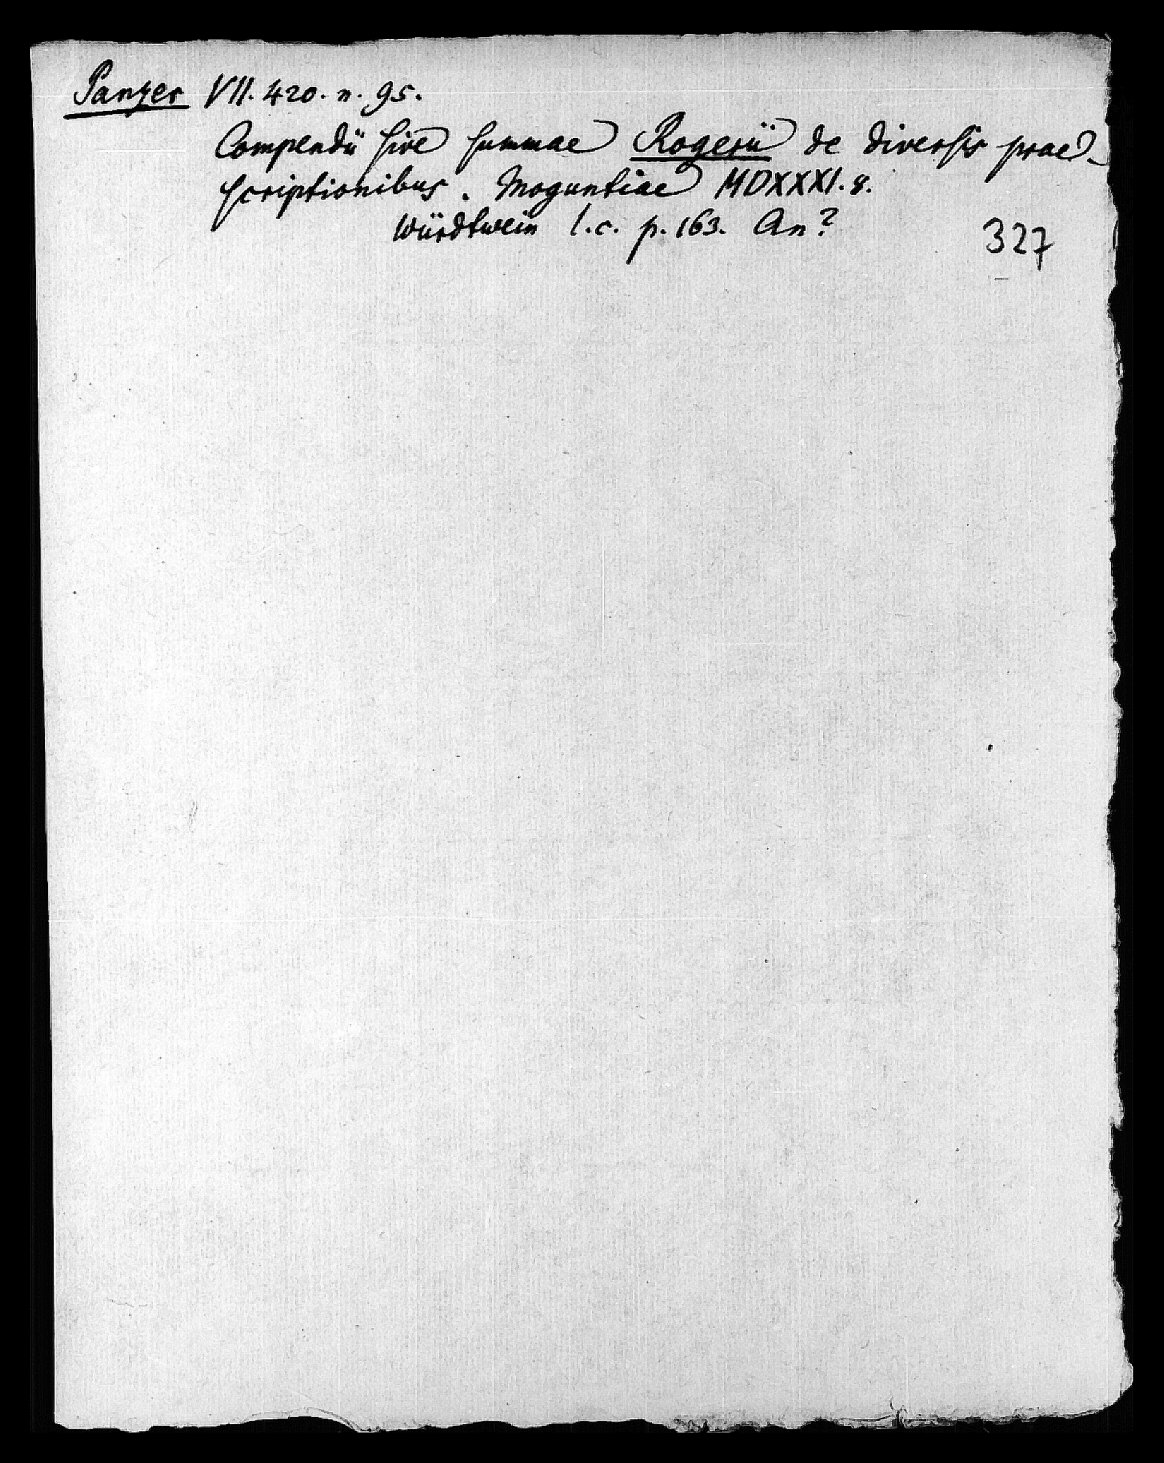 Panzer VII. 420. n. 95.
Compendii sive summae Rogerii de diversis prae-
scriptionibus. Moguntiae MDXXXI. 8.
Würdtwein l. c. p. 163. An?
327